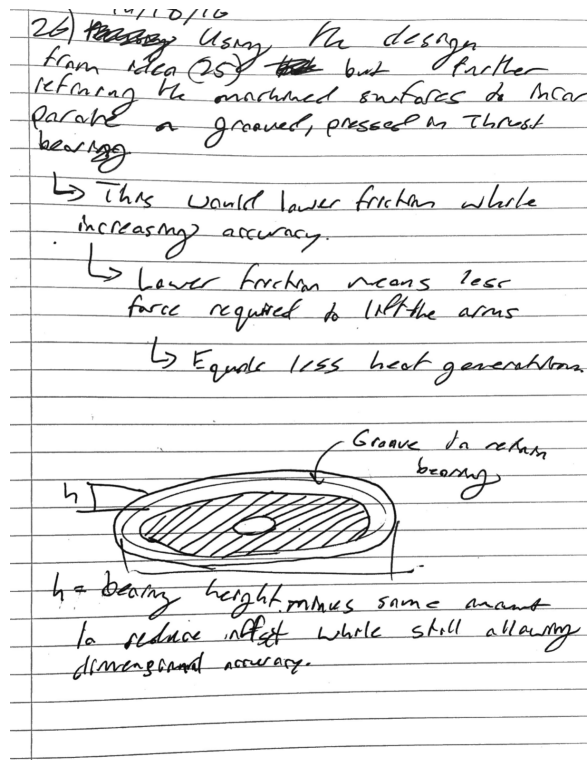 14/10/16
26) Using the design
from idea (25) but further
refining the machined surfaces to incor
parate a grooved, pressed in thrust
bearing
↳ This would lower friction while
increasing accuracy.
↳ Lower friction means less
force required to lift the arms
↳ Equals less heat generation
Groove to retain
bearing
h
h = bearing height minus some amount
to reduce offset while still allowing
dimensional accuracy.